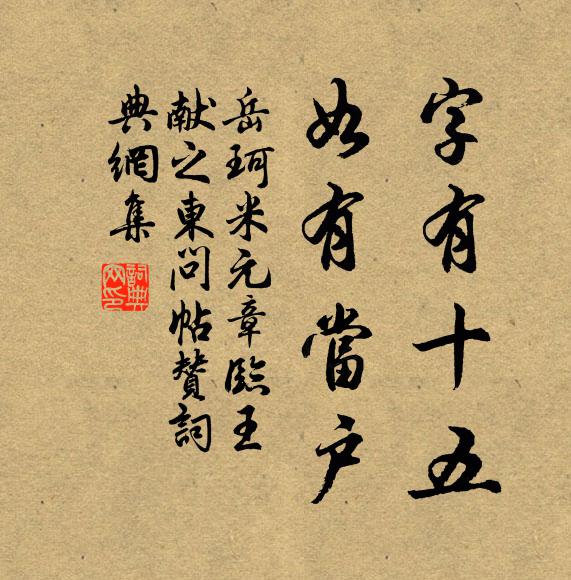 字有十五
如有當戶
岳珂米元章臨王
献之東問帖贊詞
典網集
詞典网印